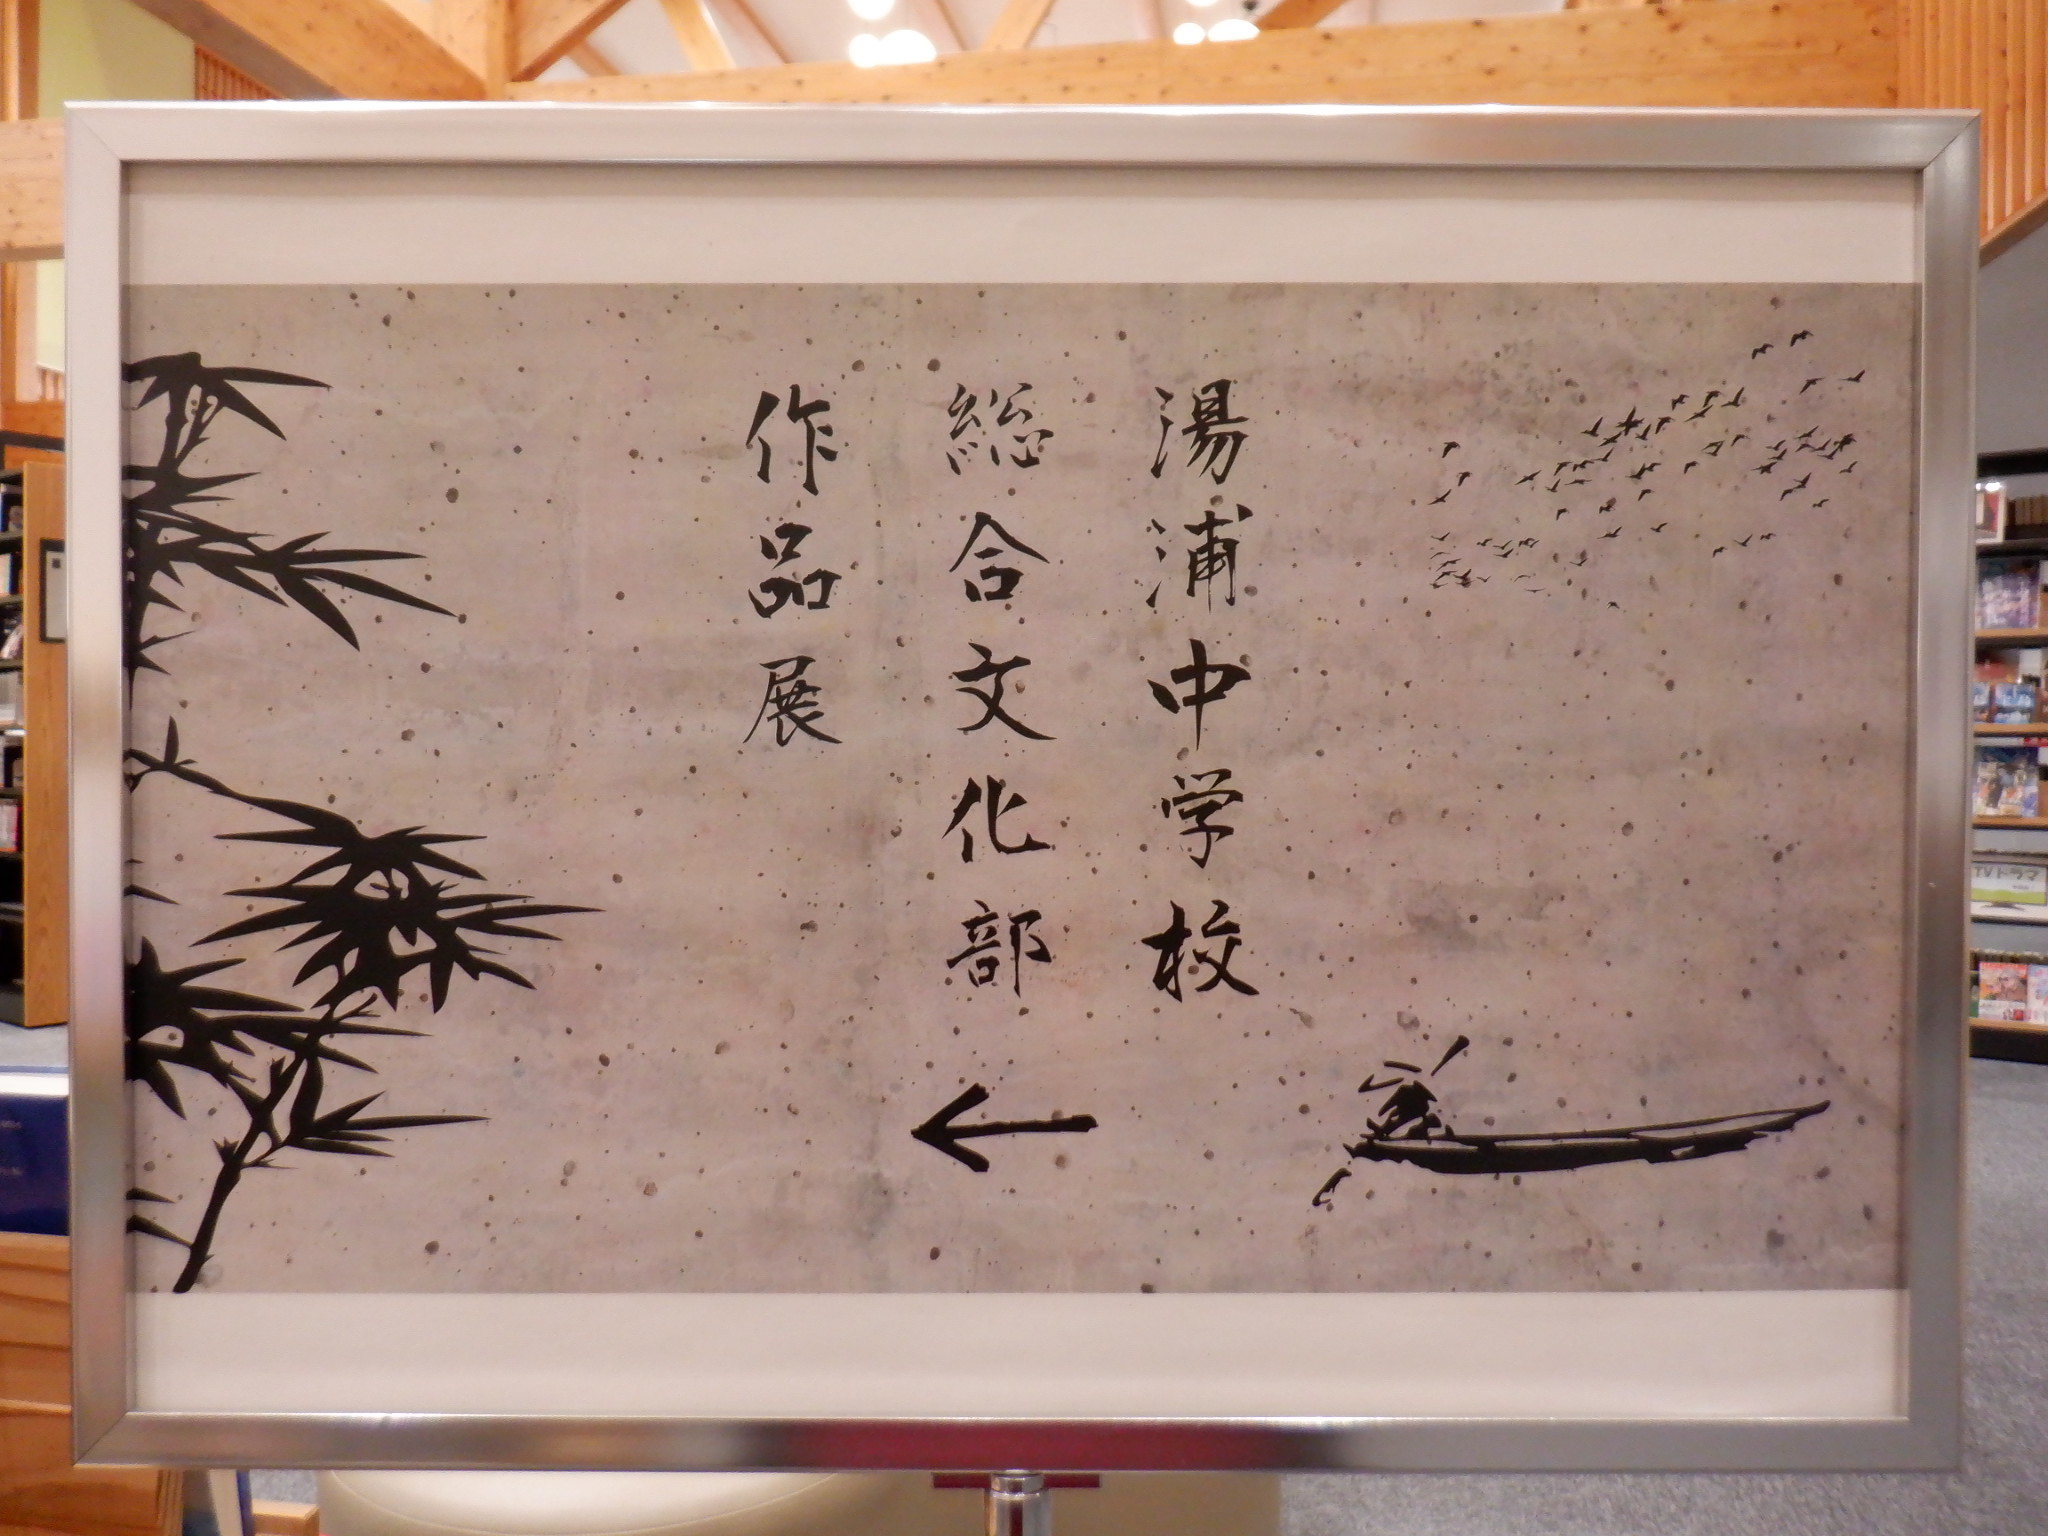 湯浦中学校
総合文化部
作品展
←
TVドラマ